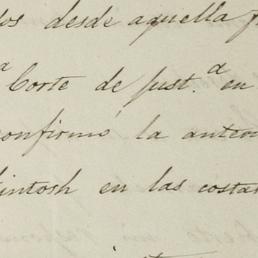 los desde aquella
a Corte de Just.a en
confirmó la anteri
intosh en las costa